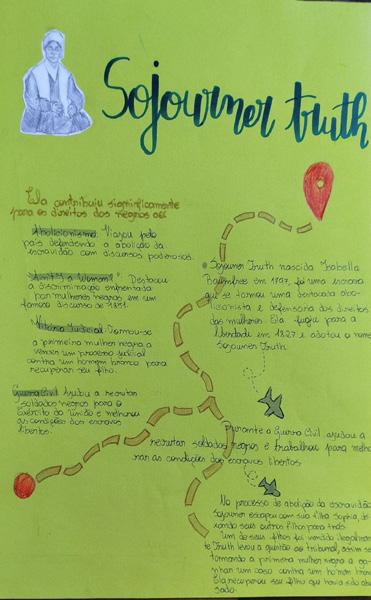 Sojourner truth
Ela contribuiu significamente
para os direitos dos negros ao:
Abolicionismo: Viajou pelo
país defendendo a abolição da
escravidão com discursos poderosos.
"Ain't I a Woman?": Destacou
a discriminação enfrentada
por mulheres negras em um
famoso discurso de 1851.
Vitória Judicial: Tornou-se
a primeira mulher negra a
vencer um processo judicial
contra um homem branco para
recuperar seu filho.
Guerra Civil: Ajudou a recrutar
soldados negros para o
Exército da União e melhorou
as condições dos escravos
libertos.
Sojourner Truth nascida Isabella
Baumfree em 1797, foi uma escrava
que se tornou uma destacada abo-
licionista e defensora dos direitos
das mulheres. Ela fugiu para a
liberdade em 1827 e adotou o nome
Sojourner Truth.
Durante a Guerra Civil, ajudou a
recrutar soldados negros e trabalhou para melho
rar as condições dos escravos libertos.
No processo de abolição da escravidão
Sojourner escapou com sua filha Sophia, de-
xando seus outros filhos para trás.
Um de seus filhos foi vendido ilegalmen
te Truth levou a questão ao tribunal, assim se
tornando a primeira mulher negra a ga-
nhar um caso contra um homem bran
Ela recuperou seu filho que havia sido abu
sado.